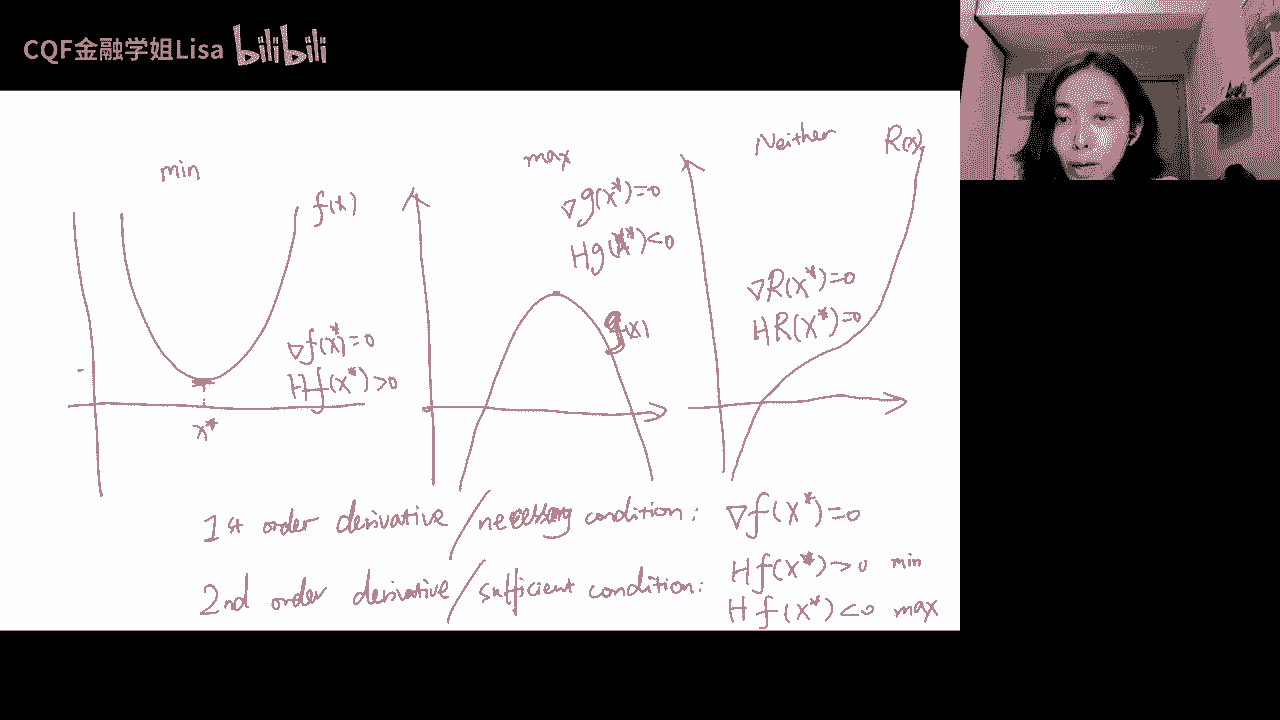 CQF金融学姐Lisa bilibili
min
f(x)
∇f(x*)=0
Hf(x*)>0
x*
max
∇g(x*)=0
Hg(x*)<0
g(x)
Neither
R(x)
∇R(x*)=0
HR(x*)=0
1st order derivative / necessary condition: ∇f(x*)=0
2nd order derivative / sufficient condition: Hf(x*)>0 min
Hf(x*)<0 max